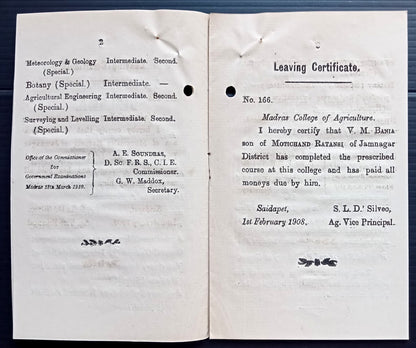 2
Meteorology & Geology Intermediate. Second.
(Special.)
Botany (Special.) Intermediate. —
Agricultural Engineering Intermediate. Second.
(Special.)
Surveying and Levelling Intermediate. Second.
(Special.)
Office of the Commissioner
for
Government Examinations
Madras March
A. E. SOUNDRAS,
D. Sc. F. R. S., C. I. E.
Commissioner.
G. W. MADDOX,
Secretary.
Leaving Certificate.
No. 166.
Madras College of Agriculture.
I hereby certify that V. M. BANIA
son of MOTICHAND RATANSI of Jamnagar
District has completed the prescribed
course at this college and has paid all
moneys due by him.
Saidapet,
1st February 1908.
S. L. D.' Silveo,
Ag. Vice Principal.